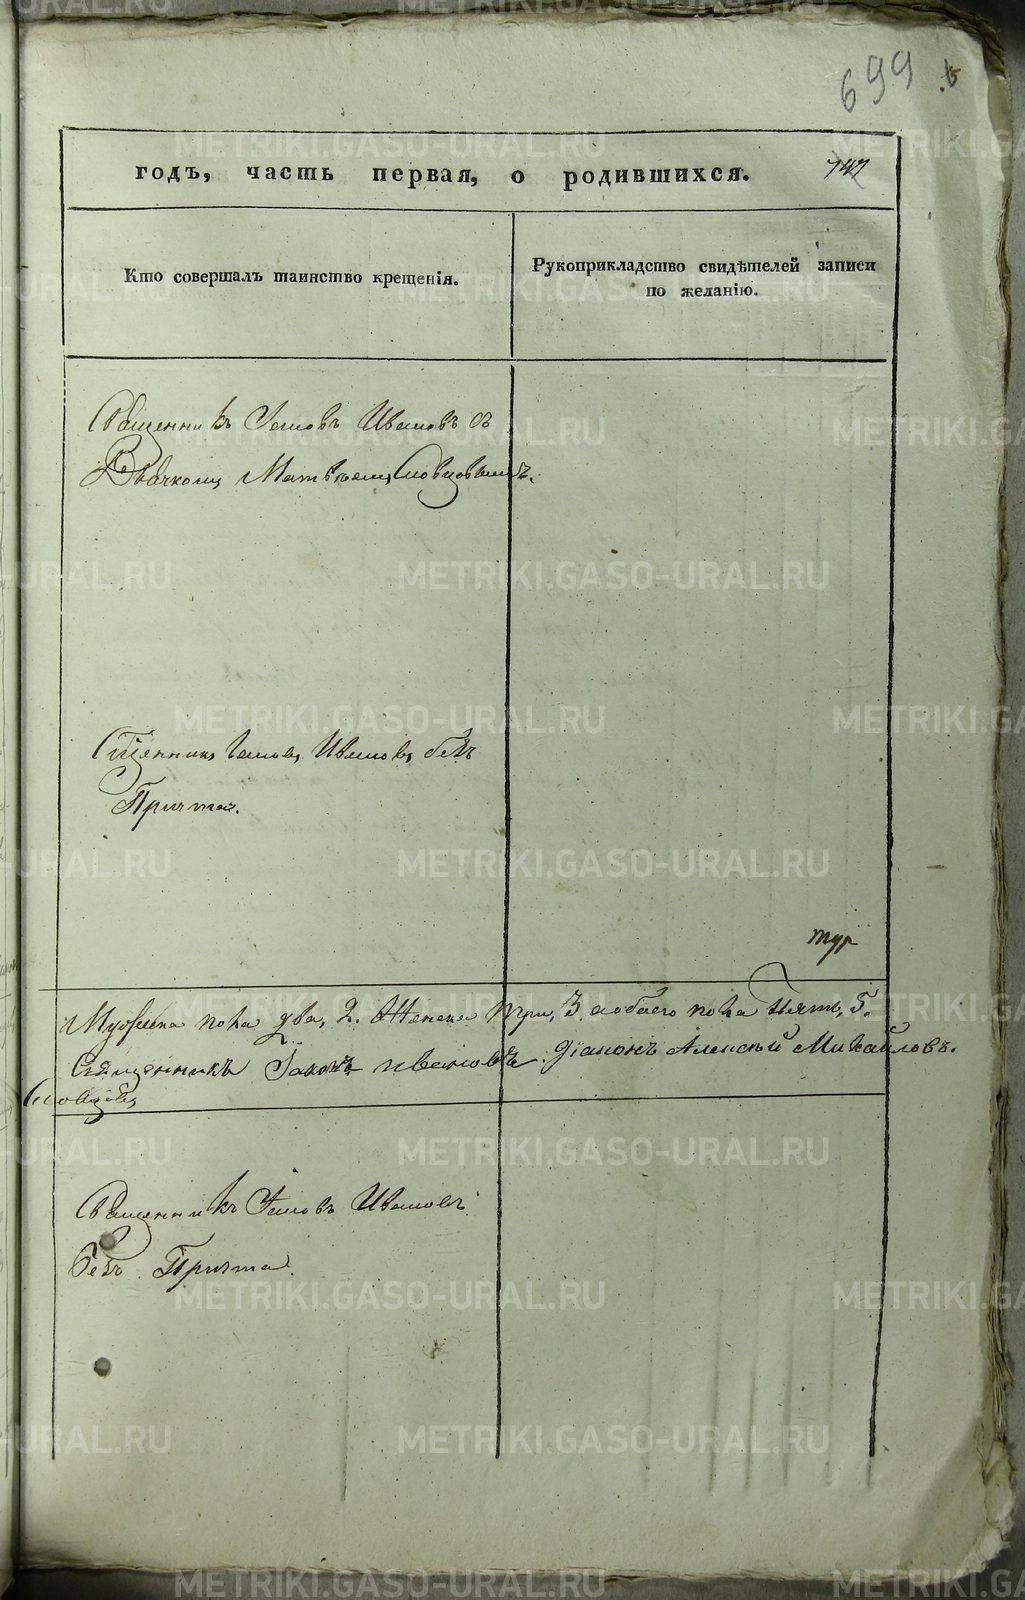 699
годъ, часть первая, о родившихся.
747
Кто совершалъ таинство крещенія.
Рукоприкладство свидѣтелей записи
по желанію.
Священникъ Іаковъ Ивановъ съ
Дьячкомъ Матвѣемъ Словцовымъ.
Сщенникъ Іаковъ Ивановъ безъ
Причта.
Мужеска пола два, 2. Женска три, 3. обоего пола Пять, 5.
Священникъ Іаковъ Ивановъ. Діаконъ Алексѣй Михайловъ.
Словцовъ
Священникъ Іаковъ Ивановъ
безъ Причта.
METRIKI.GASO-URAL.RU